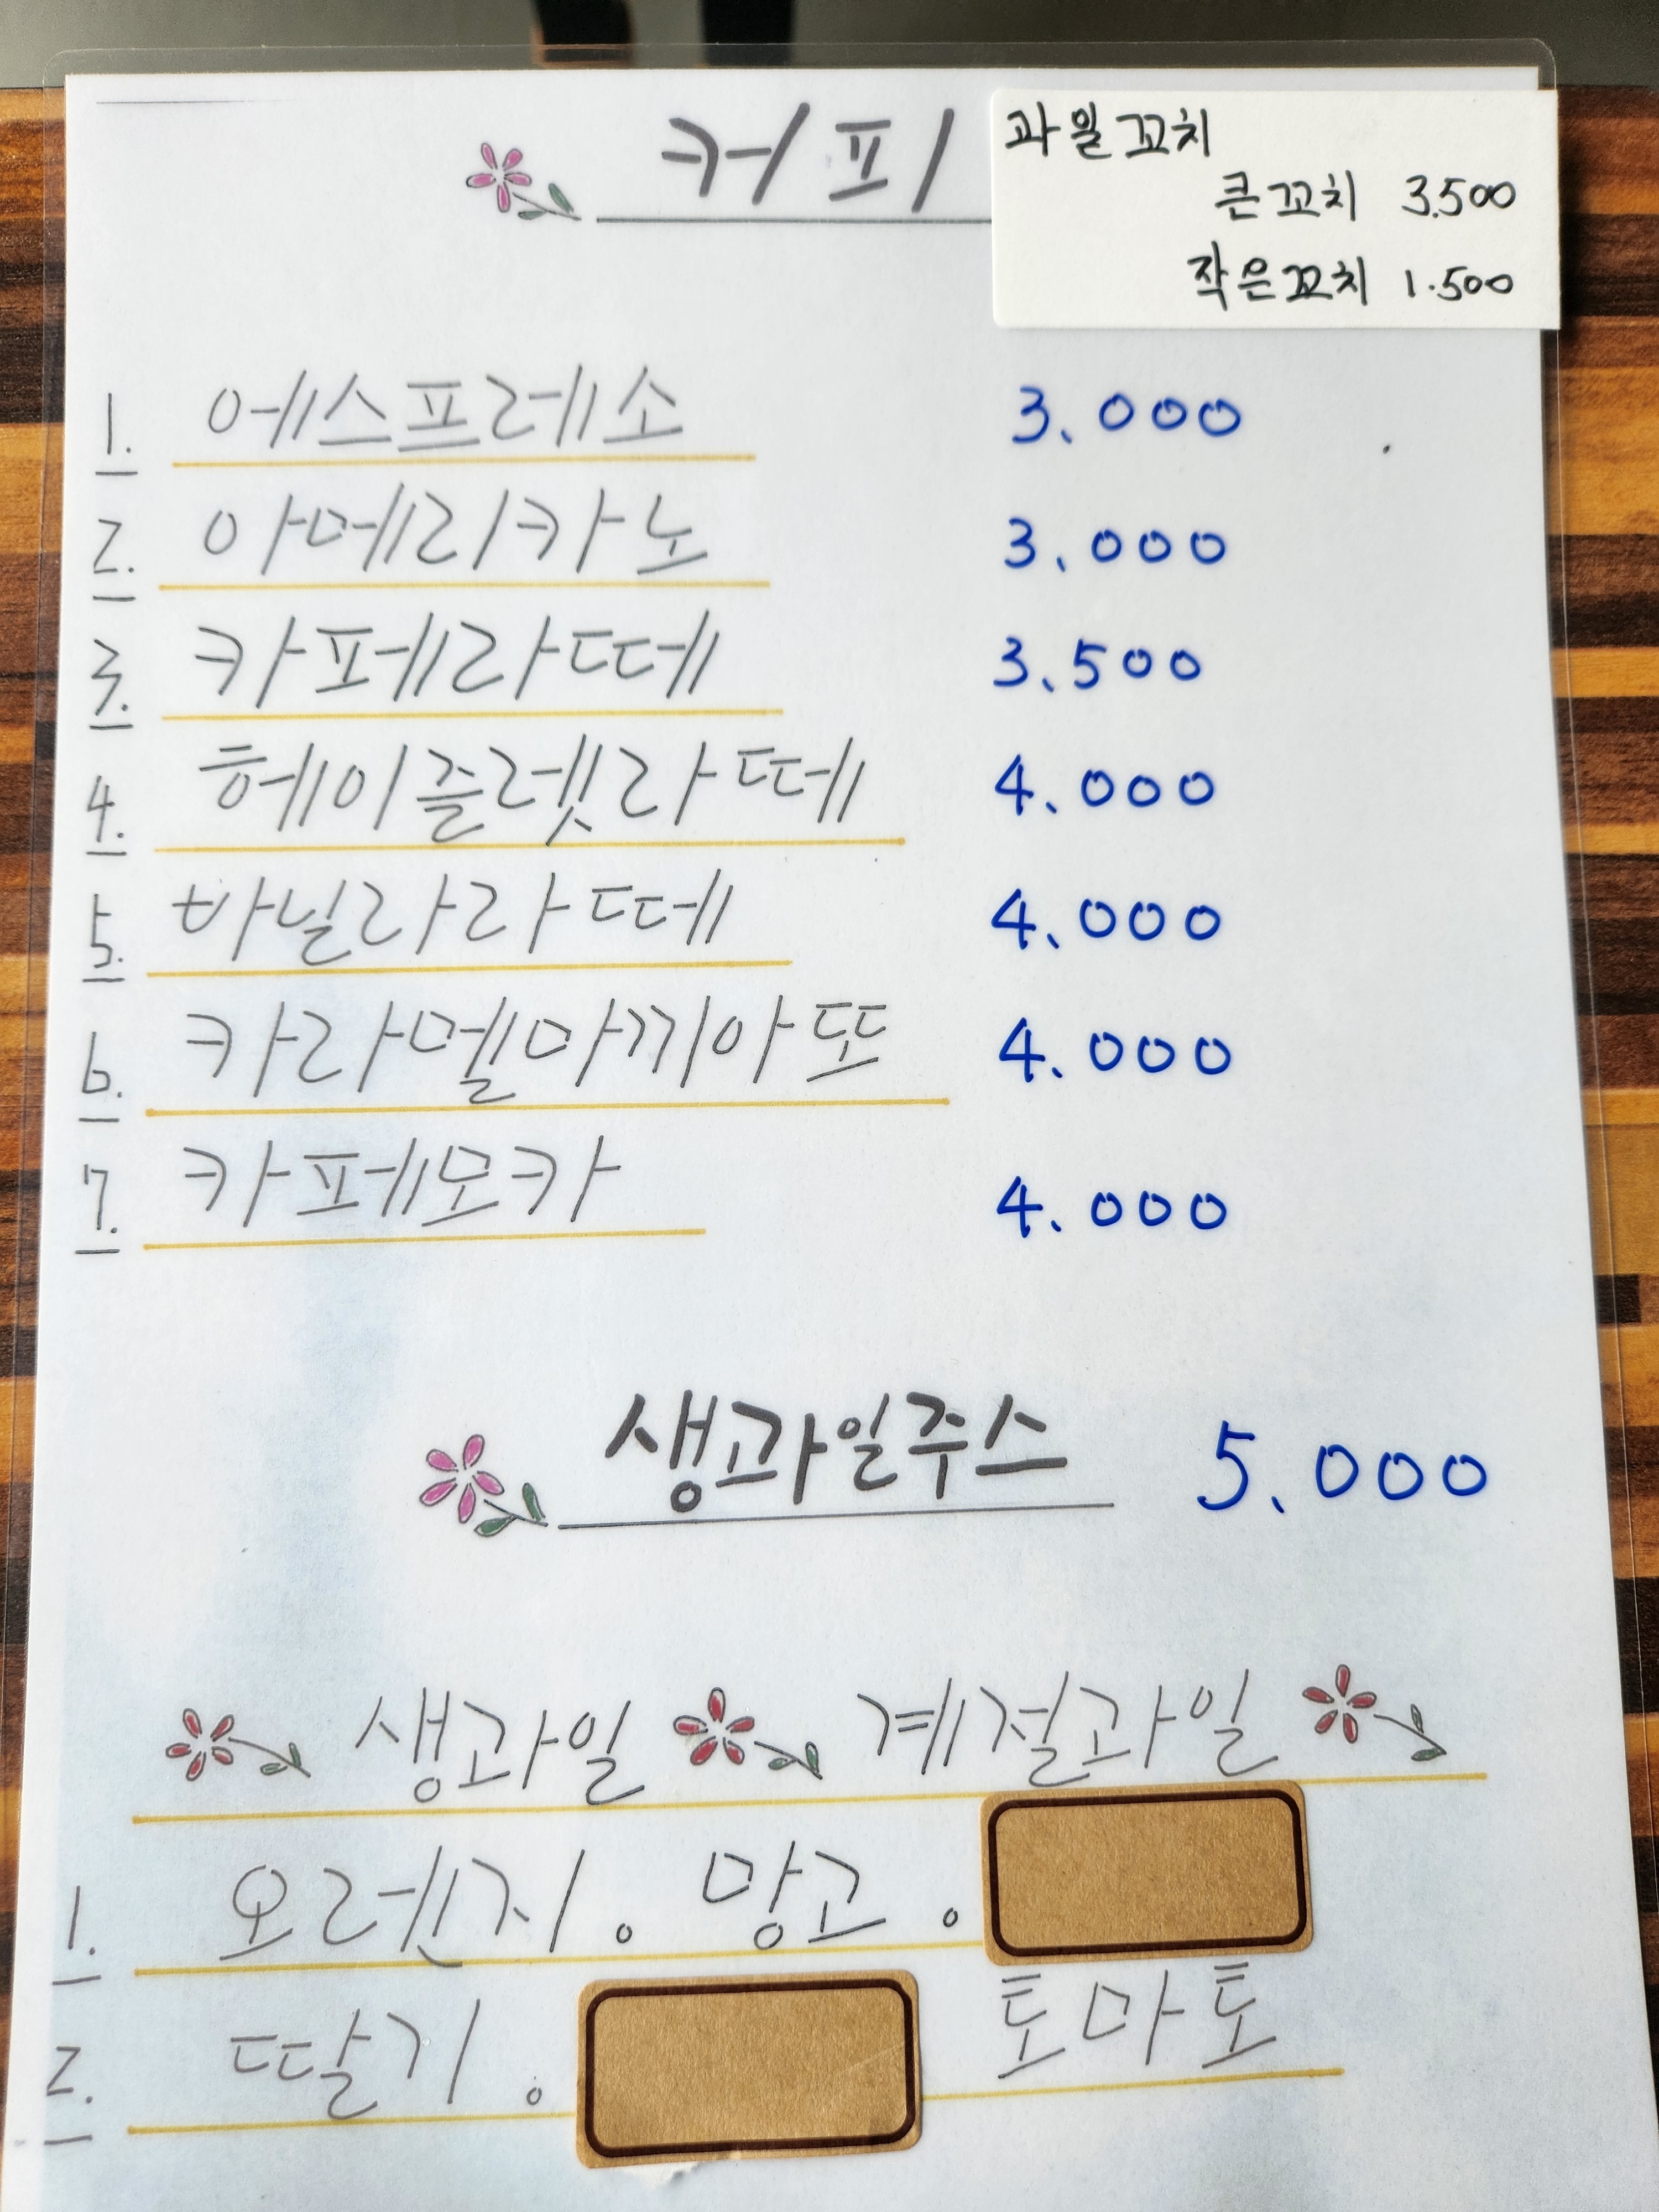 커피
과일꼬치
큰꼬치 3.500
작은꼬치 1.500
1. 에스프레소 3.000
2. 아메리카노 3.000
3. 카페라떼 3.500
4. 헤이즐렛라떼 4.000
5. 바닐라라떼 4.000
6. 카라멜마끼아또 4.000
7. 카페모카 4.000
생과일주스 5.000
생과일 계절과일
1. 오렌지. 망고.
2. 딸기. 토마토